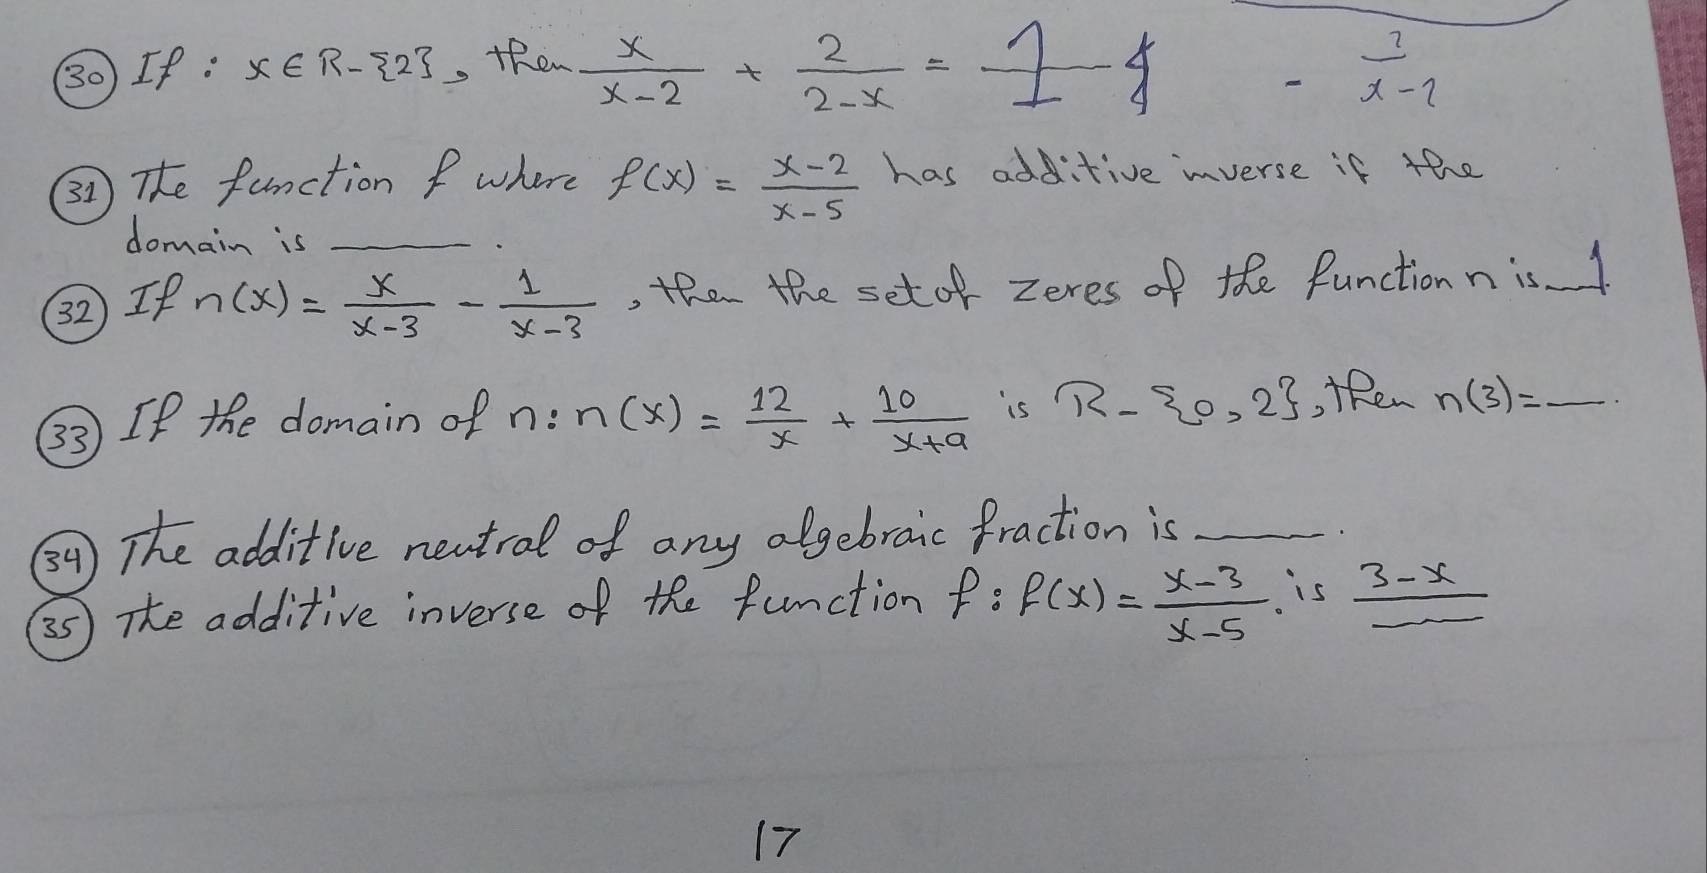 30 If : x ∈ R - {2}, then x/(x-2) + 2/(2-x) = 1 - 2/(x-2)
31 The function f where f(x) = (x-2)/(x-5) has additive inverse if the
domain is ______ .
32 If n(x) = x/(x-3) - 1/(x-3) , then the set of zeres of the function n is 1.
33 If the domain of n: n(x) = 12/x + 10/(x+a) is R - {0, 2}, then n(3) = ___ .
34 The additive neutral of any algebraic fraction is ______ .
35 The additive inverse of the function f: f(x) = (x-3)/(x-5) . is (3-x)/______
17